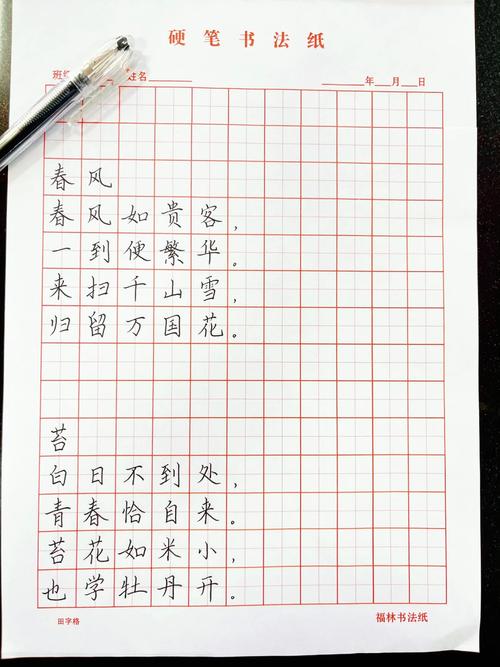 硬笔书法纸
班级 姓名 年 月 日
春风
春风如贵客，
一到便繁华。
来扫千山雪，
归留万国花。
苔
白日不到处，
青春恰自来。
苔花如米小，
也学牡丹开。
田字格 福林书法纸